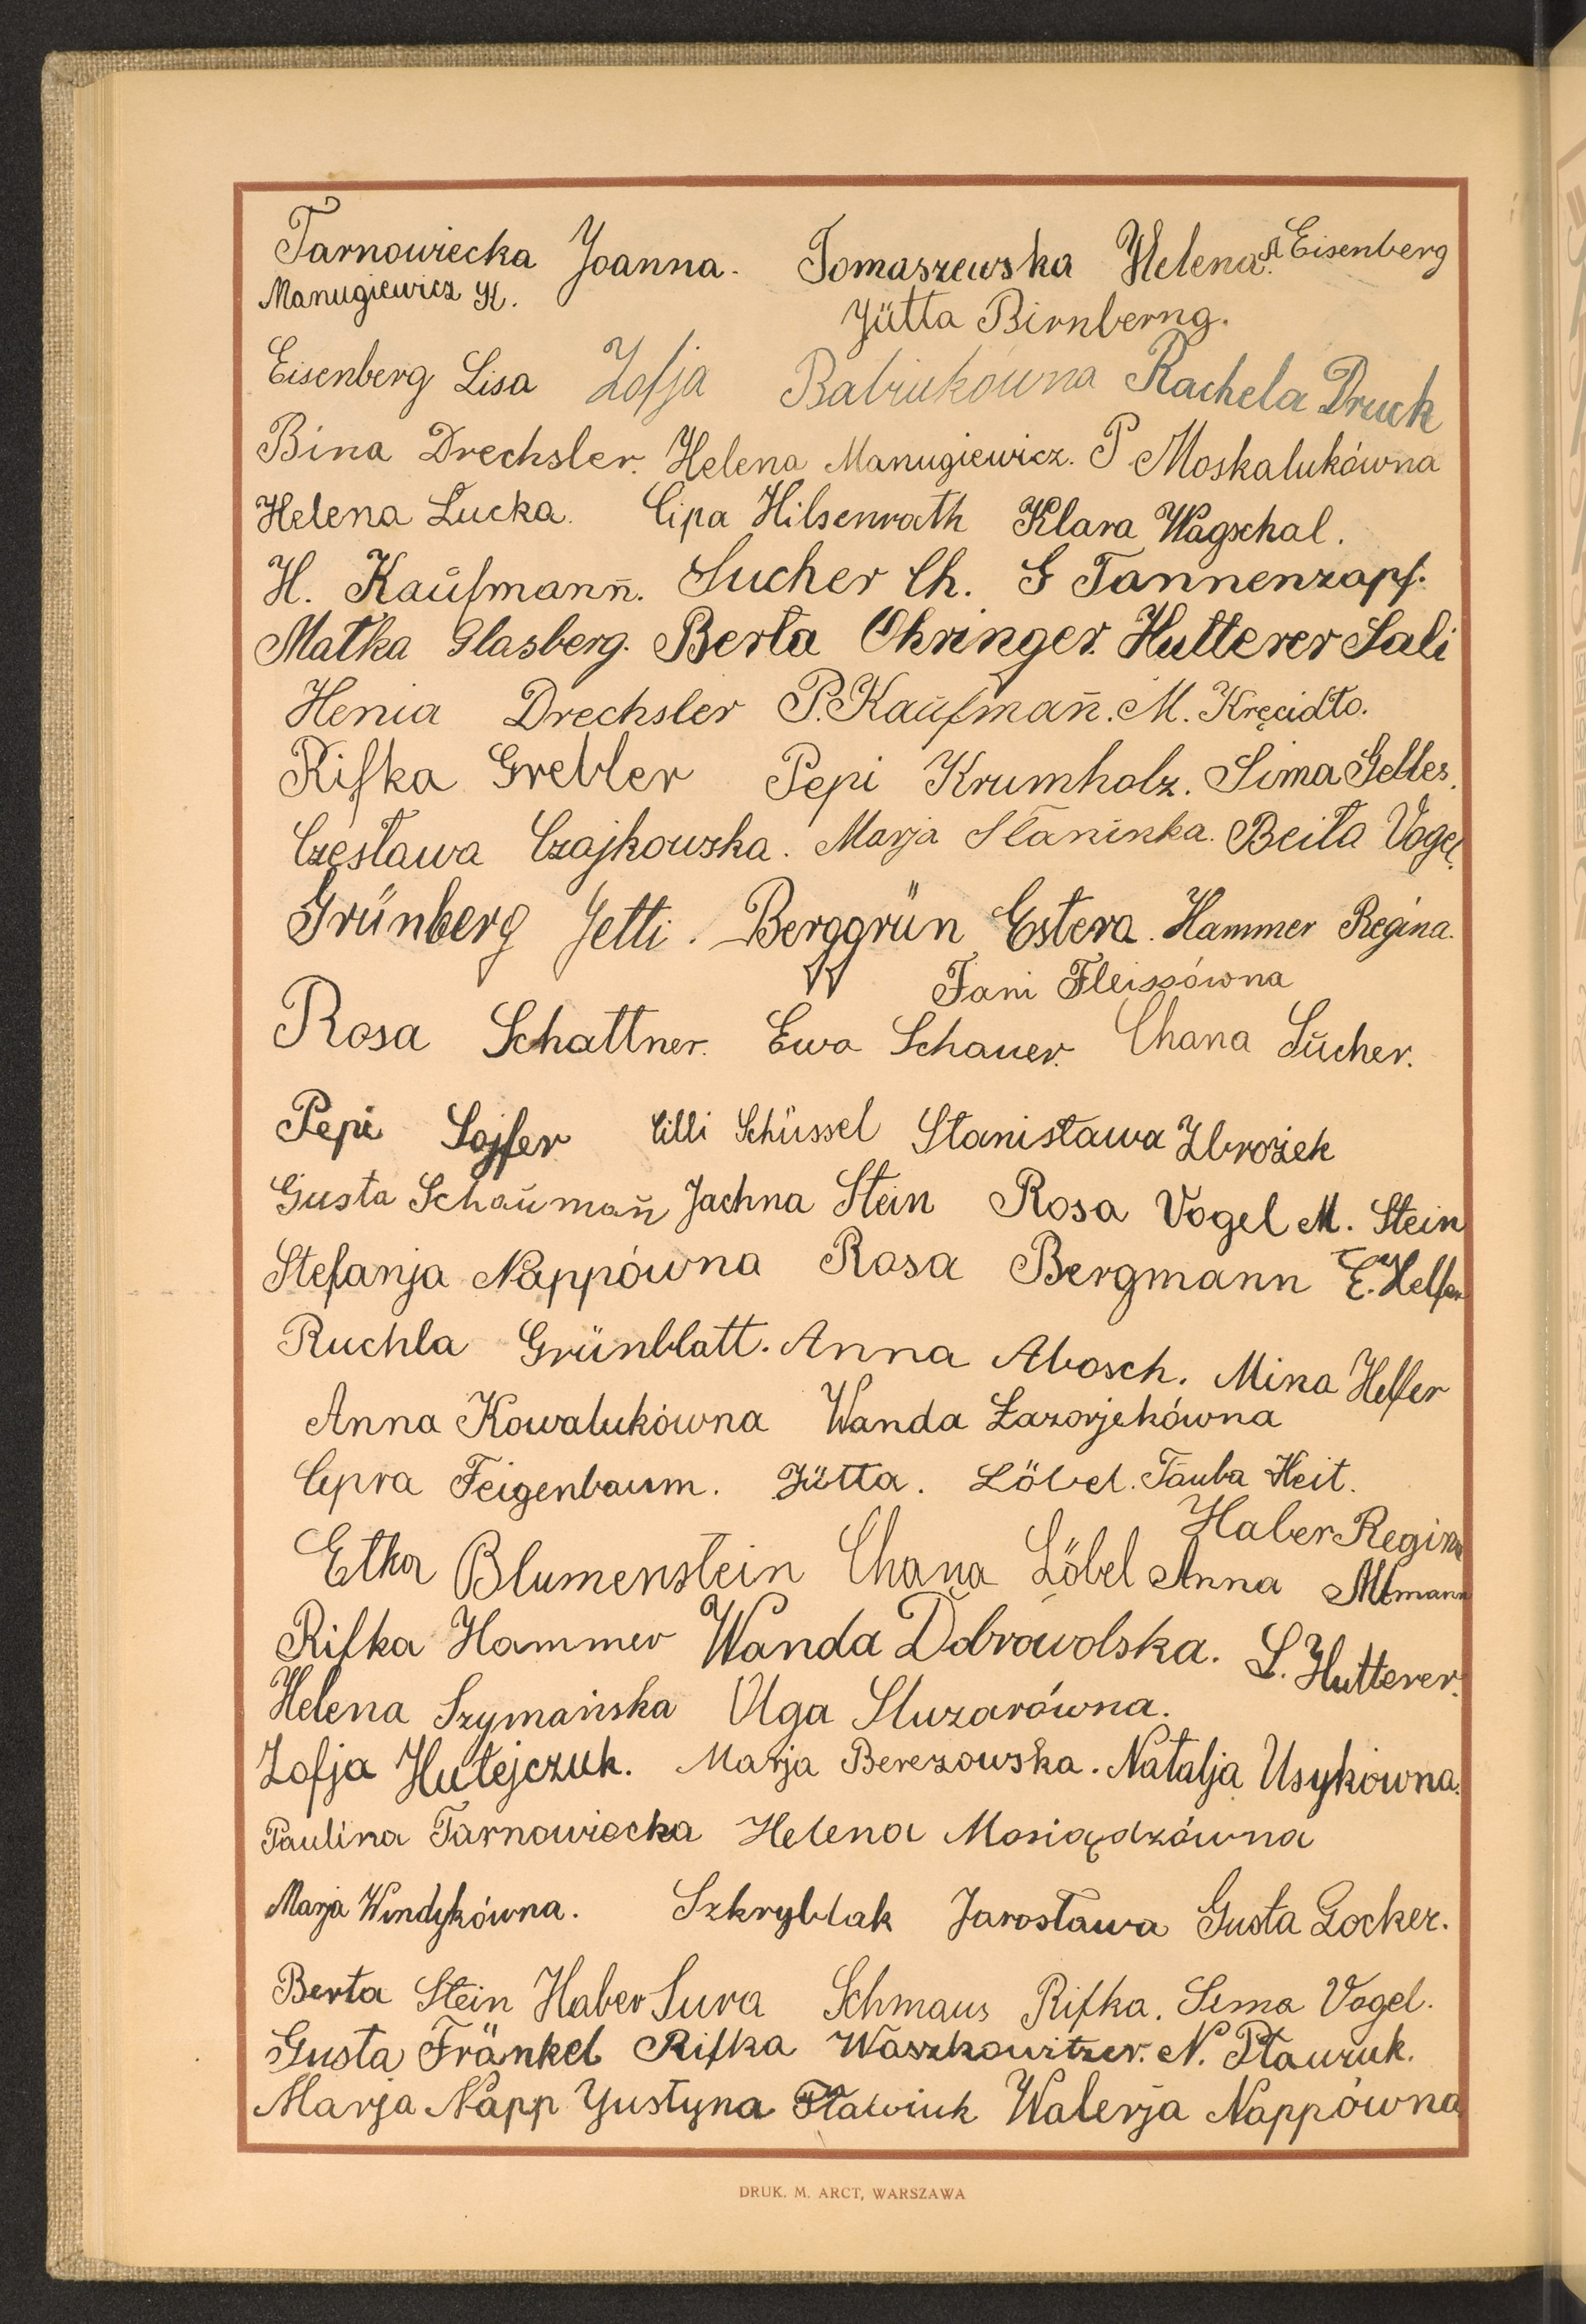 Tarnowiecka Joanna. Tomaszewska Helena. A. Eisenberg
Manugiewicz K.
Jütta Birnberng.
Eisenberg Lisa Zofja Babiukówna Rachela Druck
Bina Drechsler. Helena Manugiewicz. P. Moskalukówna
Helena Łucka. Cipa Hilsenrath Klara Wagschal.
H. Kaufmann. Sucher Ch. G Tannenzapf.
Matka Glasberg. Berta Ohringer. Hutterer Sali
Henia Drechsler P. Kaufmann. M. Kręcidło.
Rifka Grebler Pepi Krumholz. Sima Gelles.
Czesława Czajkowska. Marja Staninka. Beila Vogel.
Grünberg Jetti. Berggrün Estera. Hammer Regina.
Fani Fleissówna
Rosa Schattner. Ewa Schauer. Chana Sucher.
Pepi Sojfer Cilli Schüssel Stanisława Zbrożek
Gusta Schaumann Jachna Stein Rosa Vogel M. Stein
Stefanja Nappówna Rosa Bergmann E. Helfer
Ruchla Grünblatt. Anna Abosch. Mina Helfer
Anna Kowalukówna Wanda
Cipra Feigenbaum. Jütta. Löbel. Tauba Heit.
Haber Regina
Etka Blumenstein Chana Löbel Anna Altmann
Rifka Hammer Wanda Dobrowolska. L. Hutterer.
Helena Szymańska Olga Sluzarówna.
Zofja Hutejczuk. Marja Berezowska. Natalja Usykówna.
Paulina Tarnowiecka Helena Mosiądzówna
Marja Windykówna. Szkryblak Jarosława Gusta Locker.
Berta Stein Haber Sura Schmaus Rifka. Sima Vogel.
Gusta Fränkel Rifka Waszkowitzer. N. Pławiuk.
Marja Napp Justyna Pławiuk Walerja Nappówna
DRUK. M. ARCT, WARSZAWA